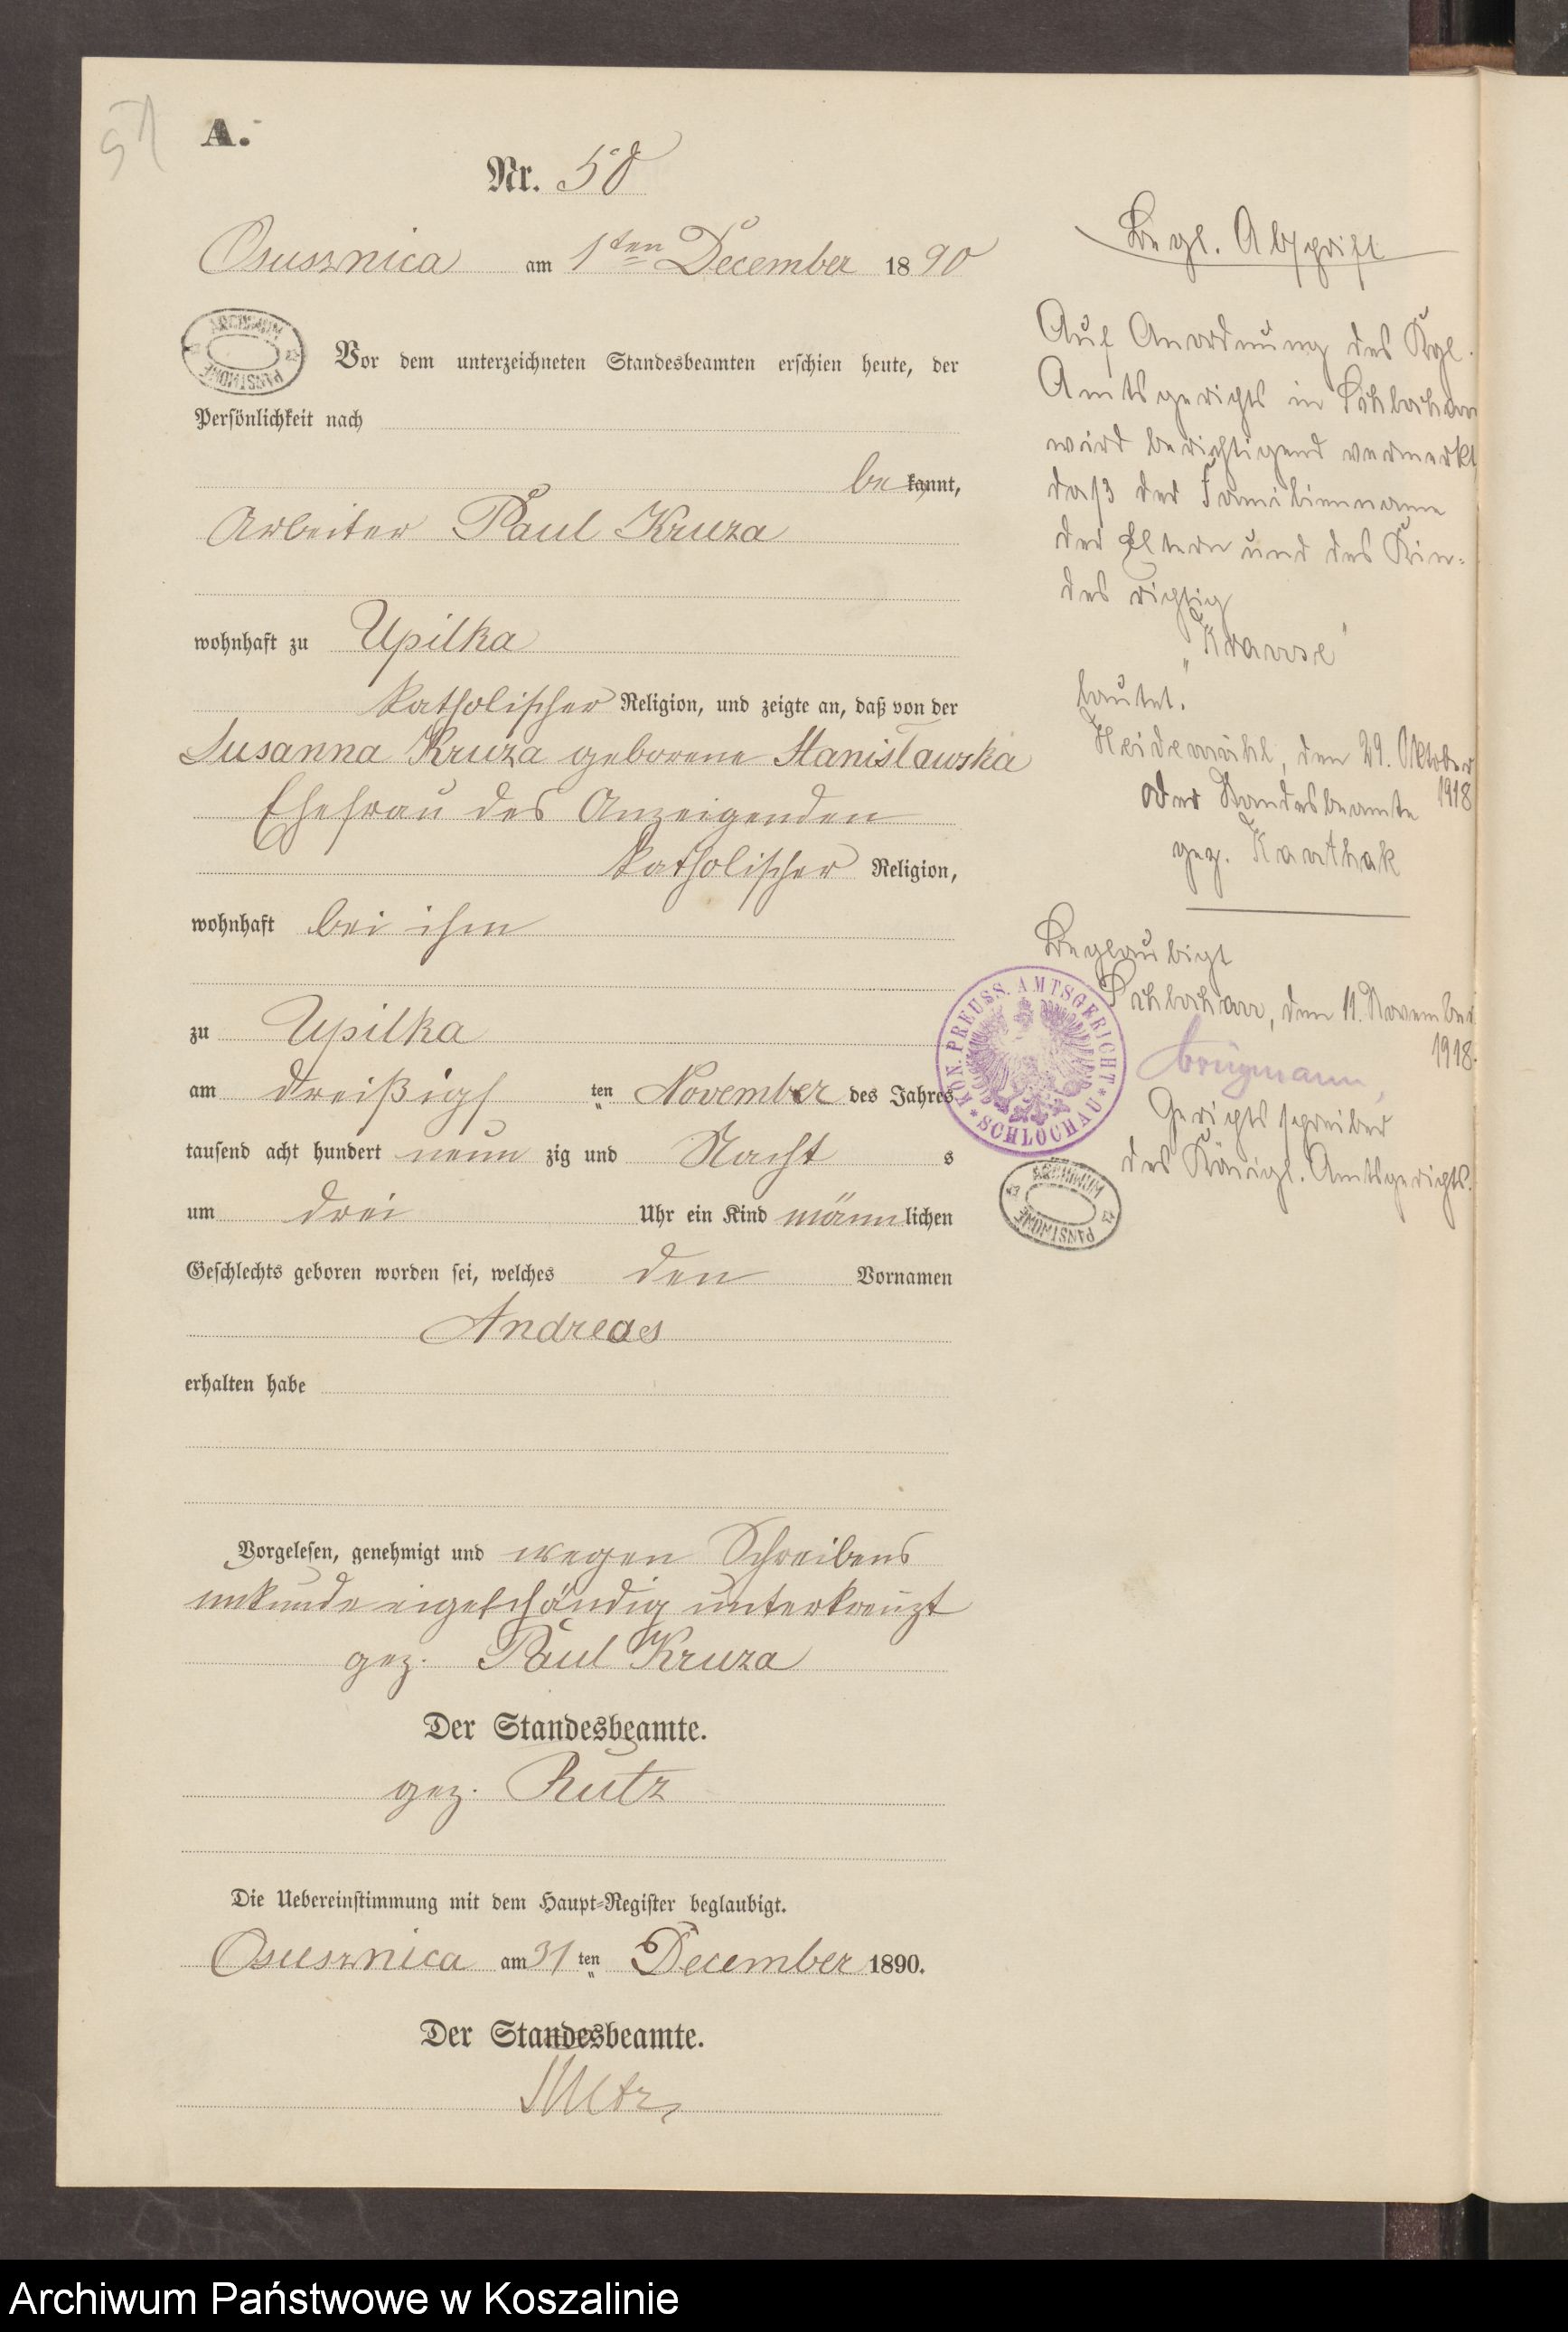 51
A.
Nr. 50
Osusznica am 1ten December 1890
ARCHIWUM PAŃSTWOWE
Vor dem unterzeichneten Standesbeamten erschien heute, der
Persönlichkeit nach
be kannt,
Arbeiter Paul Kruza
wohnhaft zu Upilka
katholischer Religion, und zeigte an, daß von der
Susanna Kruza geborene Stanisławska
Ehefrau des Anzeigenden
katholischer Religion,
wohnhaft bei ihm
zu Upilka
am dreißigs ten November des Jahres
tausend acht hundert neun zig und Nacht s
um drei Uhr ein Kind männlichen
Geschlechts geboren worden sei, welches den Vornamen
Andreas
erhalten habe
Vorgelesen, genehmigt und wegen Schreibens
unkunde eigenhändig unterkreuzt
gez. Paul Kruza
Der Standesbeamte.
gez. Rutz
Die Uebereinstimmung mit dem Haupt-Register beglaubigt.
Osusznica am 31 ten December 1890.
Der Standesbeamte.
Rutz
Begl. Abschrift
Auf Anordnung des Kgl.
Amtsgerichts in Schlochau
wird berichtigend vermerkt
daß der Familienname
der Eltern und des Kin-
des richtig
"Krause"
lautet.
Heidemühl, den 29. Oktober
1918
Der Standesbeamte
gez. Kanthak
Beglaubigt
Schlochau, den 11. November
1918.
Brügmann
Gerichtsschreiber
des Königl. Amtsgerichts.
KÖN. PREUSS. AMTSGERICHT * SCHLOCHAU *
ARCHIWUM PAŃSTWOWE
Archiwum Państwowe w Koszalinie